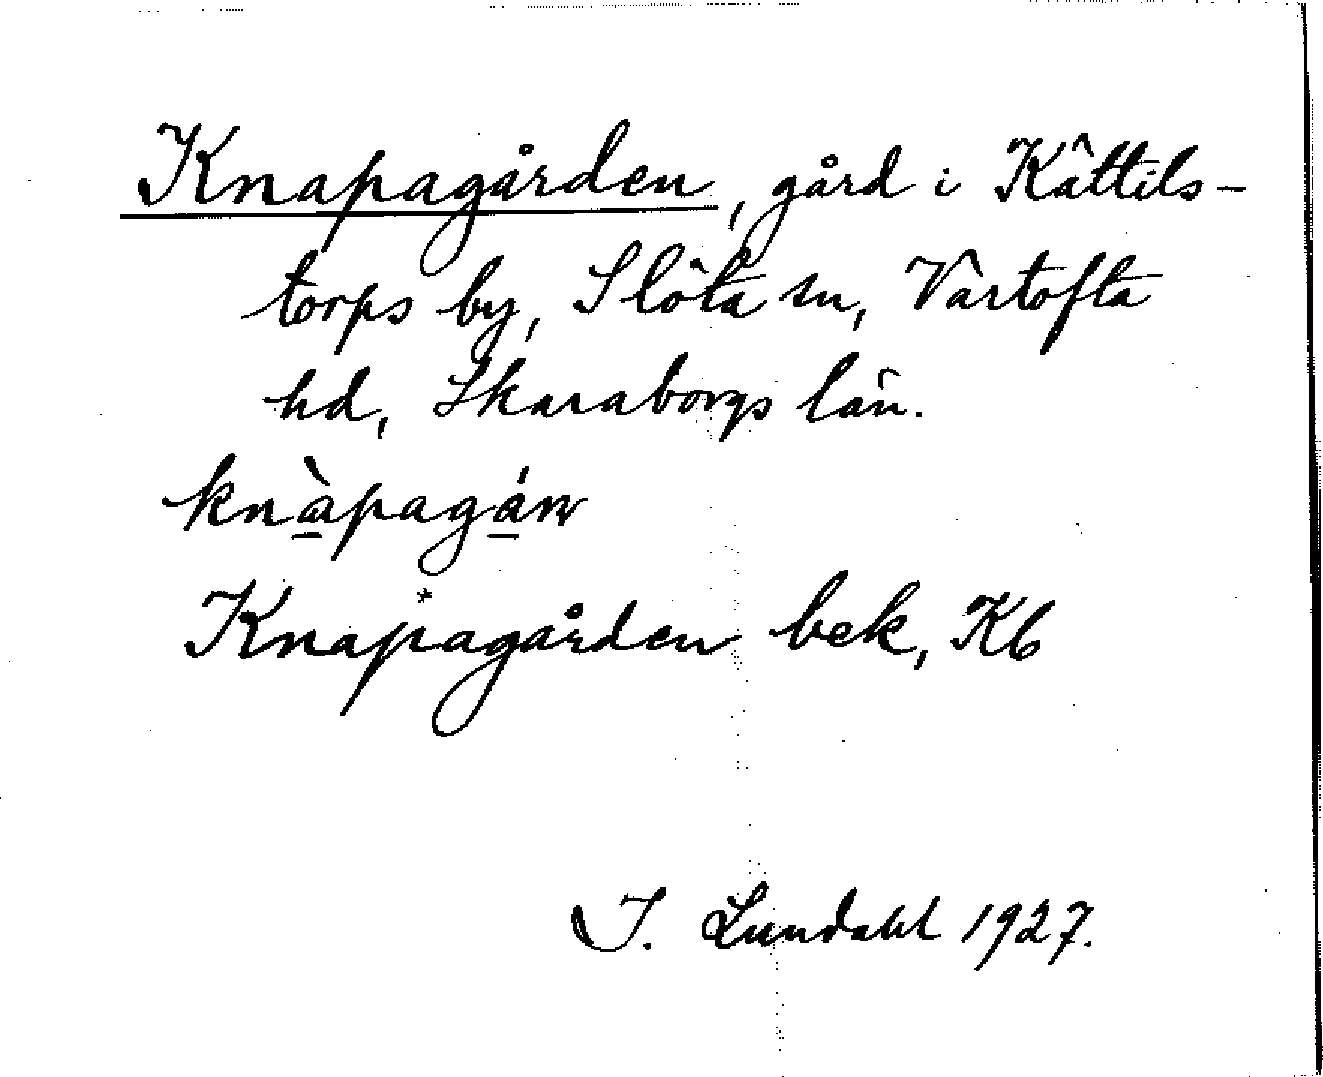 Knapagården, gård i Kättils-
torps by, Slöta sn, Vartofta
hd, Skaraborgs län.
knàpagáṇ
Knapagården bek, Kb
I. Lundahl 1927.